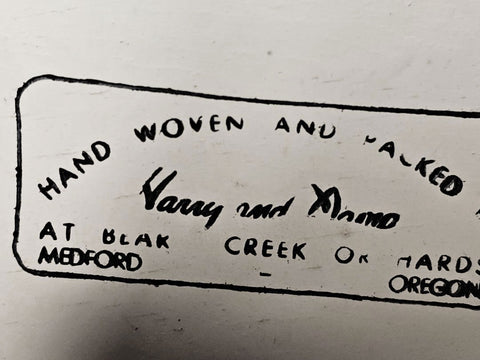 HAND WOVEN AND PACKED
Harry and
AT BEAR CREEK ORCHARDS
MEDFORD OREGON